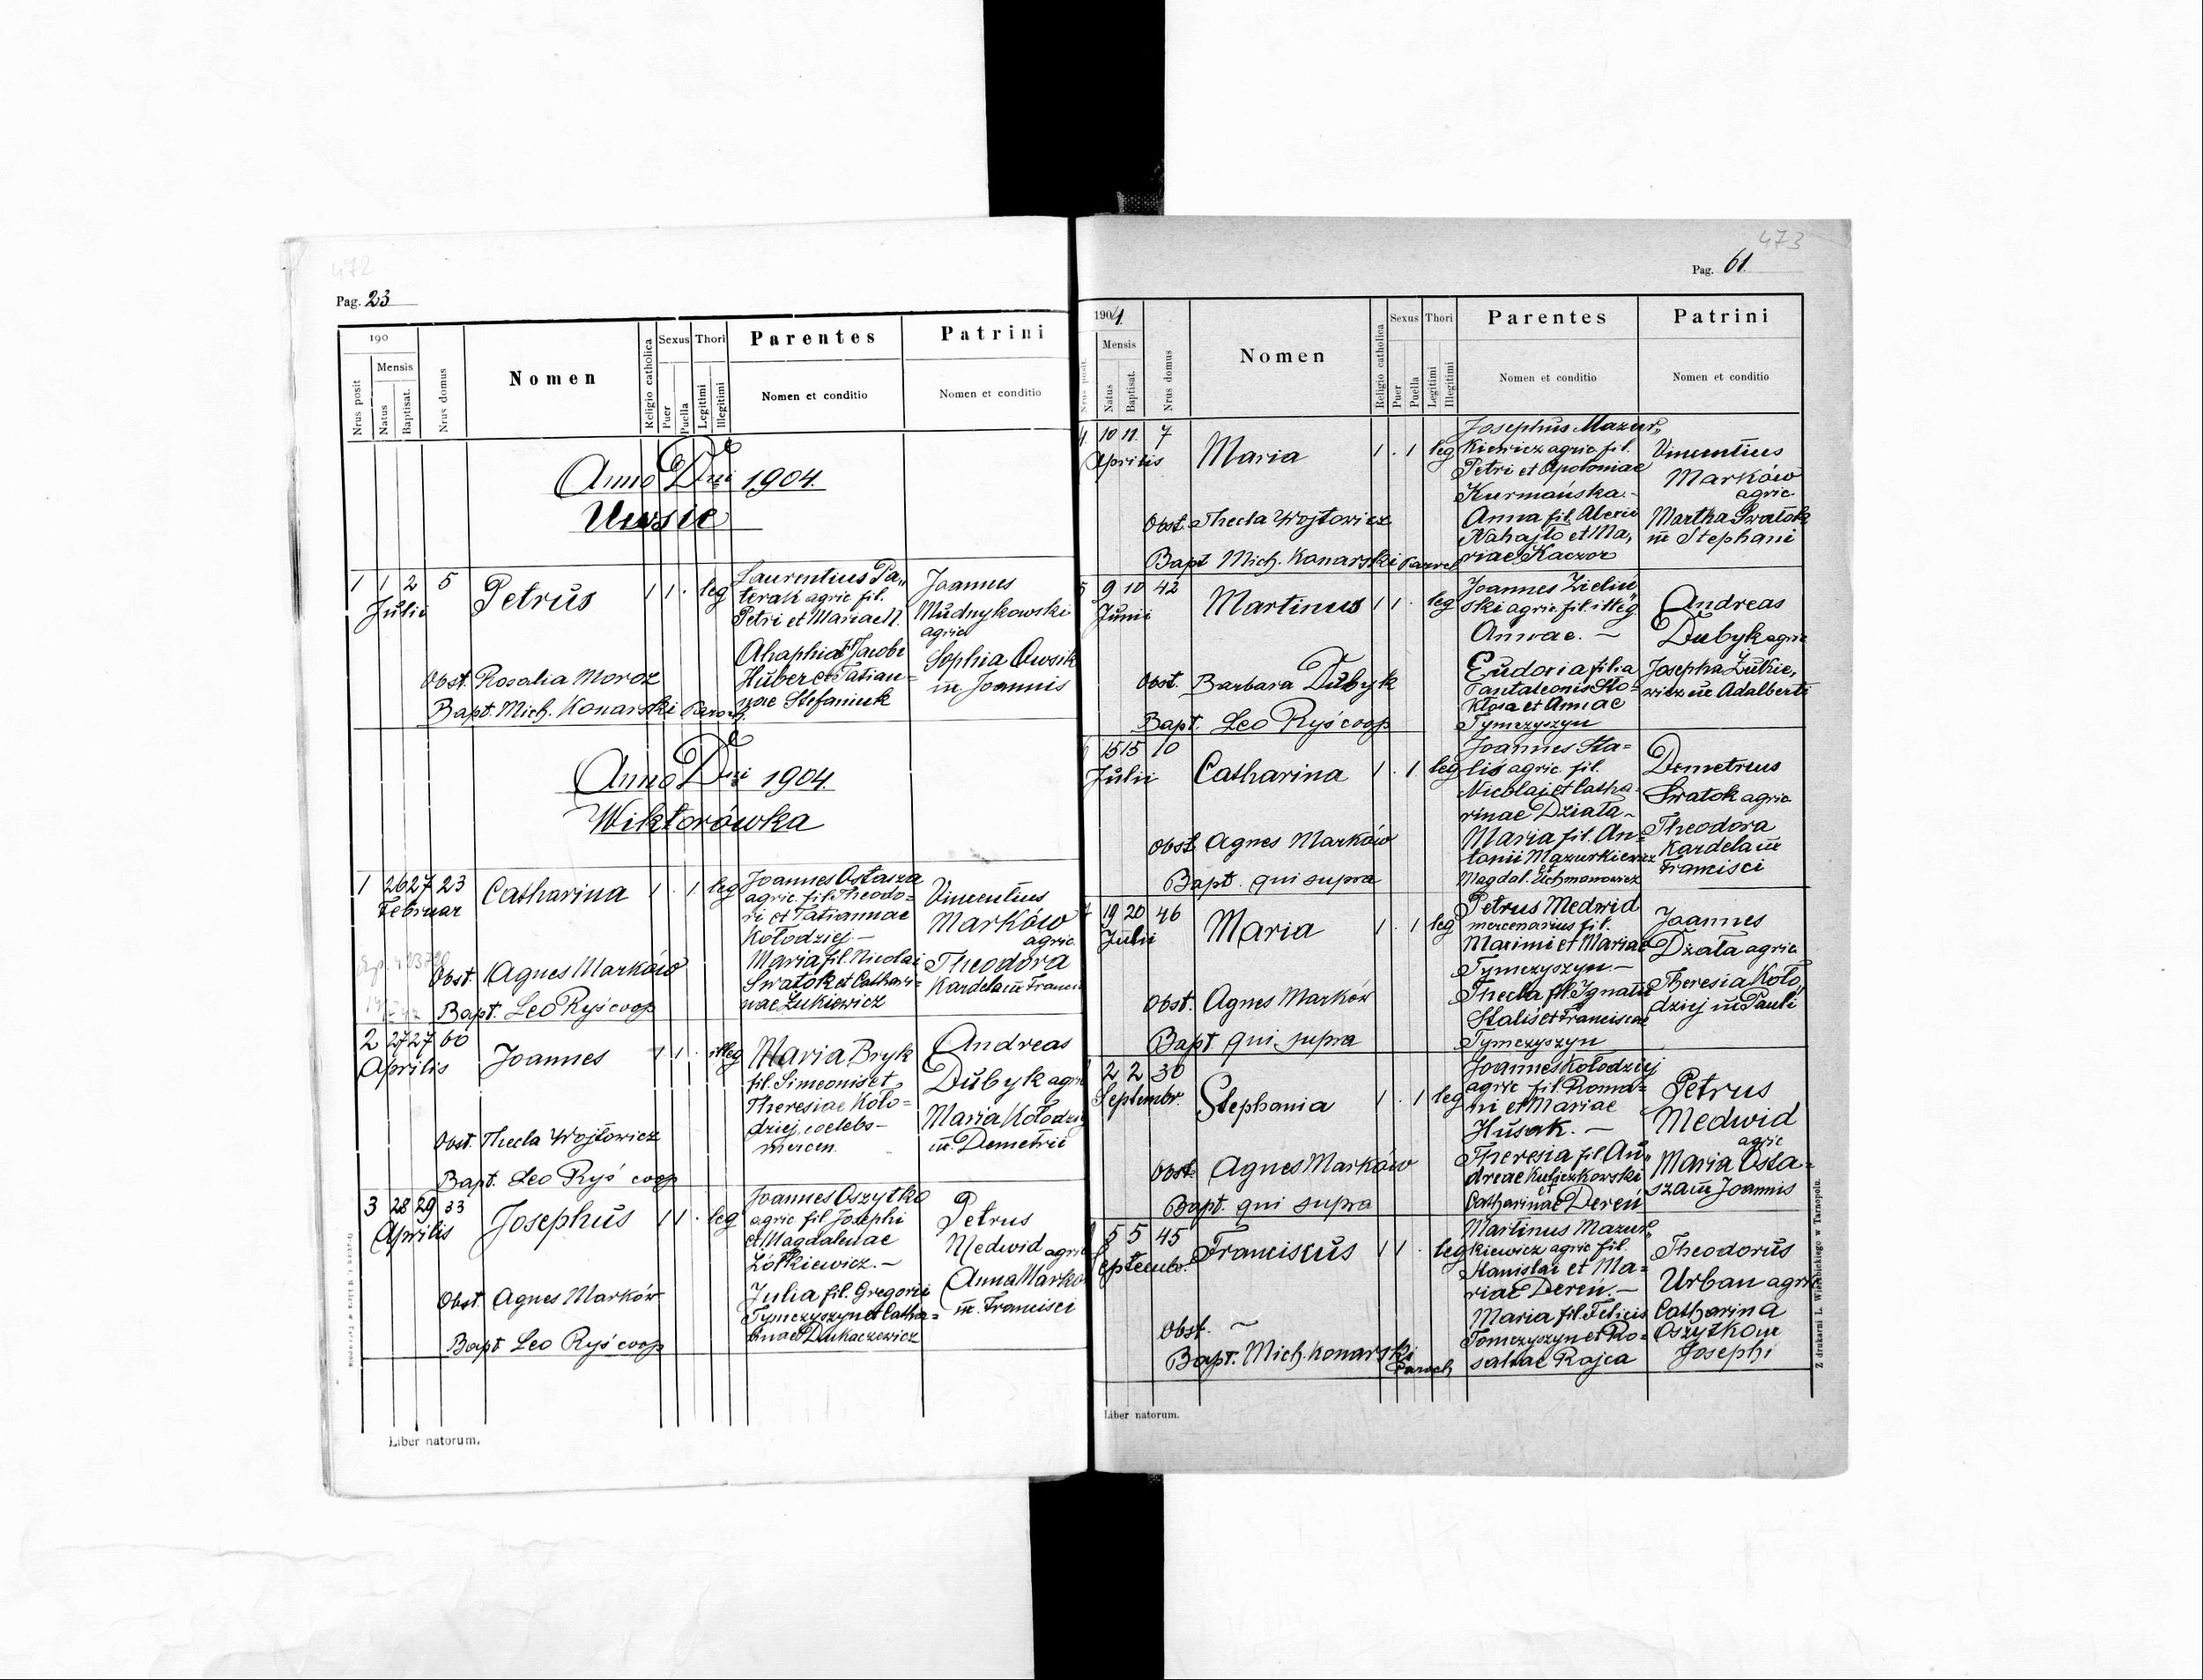 472
Pag. 23
190
Nrus posit
Mensis
Natus
Baptisat.
Nrus domus
Nomen
Religio catholica
Sexus
Puer
Puella
Thori
Legitimi
Illegitimi
Parentes
Nomen et conditio
Patrini
Nomen et conditio
Anno Dni 1904.
Uwsie
1 1 2 5 Petrus 1 1 . leg
Julii
Laurentius Pa„
terak agric fil.
Petri et Mariae N.
Ahaphia fil Jacobi
Huber et Tatian=
nae Stefaniuk
Joannes
Mudnykowski
agric
Sophia Owsik
ux Joannis
Obst. Rosalia Moroz
Bapt. Mich. Konarski Paroch.
Anno Dni 1904.
Wiktorówka
1 26 27 23 Catharina 1 . 1 leg
Februar
Joannes Ostasza
agric. fil. Theodo=
ri et Tatiannae
Kołodziej.—
Maria fil. Nicolai
Swatok et Cathari=
nae Żukiewicz
Vincentius
Marków
agric.
Theodora
Kardela ux Franci
Obst. Agnes Marków
Bapt. Leo Ryś coop
2 27 27 60 Joannes 1 1 . illeg
Aprilis
Maria Bryk
fil. Simeonis et
Theresiae Koło=
dziej, coelebs—
mercen.
Andreas
Dubyk agri
Maria Kołodziej
ux. Demetrii
Obst. Thecla Wojtowicz
Bapt. Leo Ryś coop
3 28 29 33 Josephus 1 1 . leg
Aprilis
Joannes Oszytko
agric fil Josephi
et Magdalenae
Żółkiewicz.—
Julia fil. Gregorii
Tymczyszyn et Catha=
rinae Dukaczewicz
Petrus
Medwid agric
Anna Marko
ux. Francisci
Obst. Agnes Marków
Bapt Leo Ryś coop
Liber natorum.
473
Pag. 61.
1904.
Nrus posit
Mensis
Natus
Baptisat.
Nrus domus
Nomen
Religio catholica
Sexus
Puer
Puella
Thori
Legitimi
Illegitimi
Parentes
Nomen et conditio
Patrini
Nomen et conditio
4 10 11. 7 Maria 1 . 1 leg
Aprilis
Josephus Mazur„
kiewicz agric fil.
Petri et Apoloniae
Kurmańska.—
Anna fil Alexii
Nahajło et Ma„
riae Kaczor
Vincentius
Marków
agric.
Martha Swatok
ux Stephani
Obst. Thecla Wojtowicz
Bapt Mich. Konarski Paroch
5 9 10 42 Martinus 1 1 . leg
Junii
Joannes Zieliń„
ski agric. fil. illeg
Annae. —
Eudoxia filia
Pantaleonis Sto=
kłosa et Annae
Tymczyszyn
Andreas
Dubyk agric
Josepha Żukie„
wicz ux Adalberti
Obst. Barbara Dubyk
Bapt. Leo Ryś coop
15 15 10 Catharina 1 . 1. leg
Julii
Joannes Sta=
liś agric. fil.
Nicolai et Catha-
rinae Działa—
Maria fil. An=
tonii Mazurkiewicz
et
Magdal. Uchmanowicz
Demetrius
Swatok agric
Theodora
Kardela ux
Francisci
Obst. Agnes Marków
Bapt. qui supra
19 20 46 Maria 1 . 1 leg
Julii
Petrus Medwid
mercenarius fil.
Maximi et Mariae
Tymczyszyn.—
Thecla fil Ignatii
Staliś et Franciscae
Tymczyszyn
Joannes
Działa agric
Theresia Koło„
dziej ux Pauli
Obst. Agnes Marków
Bapt qui supra
2 2 30 Stephania 1 . 1 leg
Septembr.
Joannes Kołodziej
agric fil Roma=
ni et Mariae
Husak. —
Theresia fil An„
dreae Kuliczkowski
et
Catharinae Dereń
Petrus
Medwid
agric
Maria Osta=
sza ux Joannis
Obst. Agnes Marków
Bapt. qui supra
5 5 45 Franciscus 1 1 . leg
Septemb.
Martinus Mazur„
kiewicz agric fil.
Stanislai et Ma=
riae Dereń.—
Maria fil. Felicis
Tomczyszyn et Ro=
saliae Rajca
Theodorus
Urban agric
Catharina
Oszytko ux
Josephi
Obst. —
Bapt. Mich. Konarski
Paroch
Liber natorum.
Z drukarni L. Wierzbickiego w Tarnopolu.